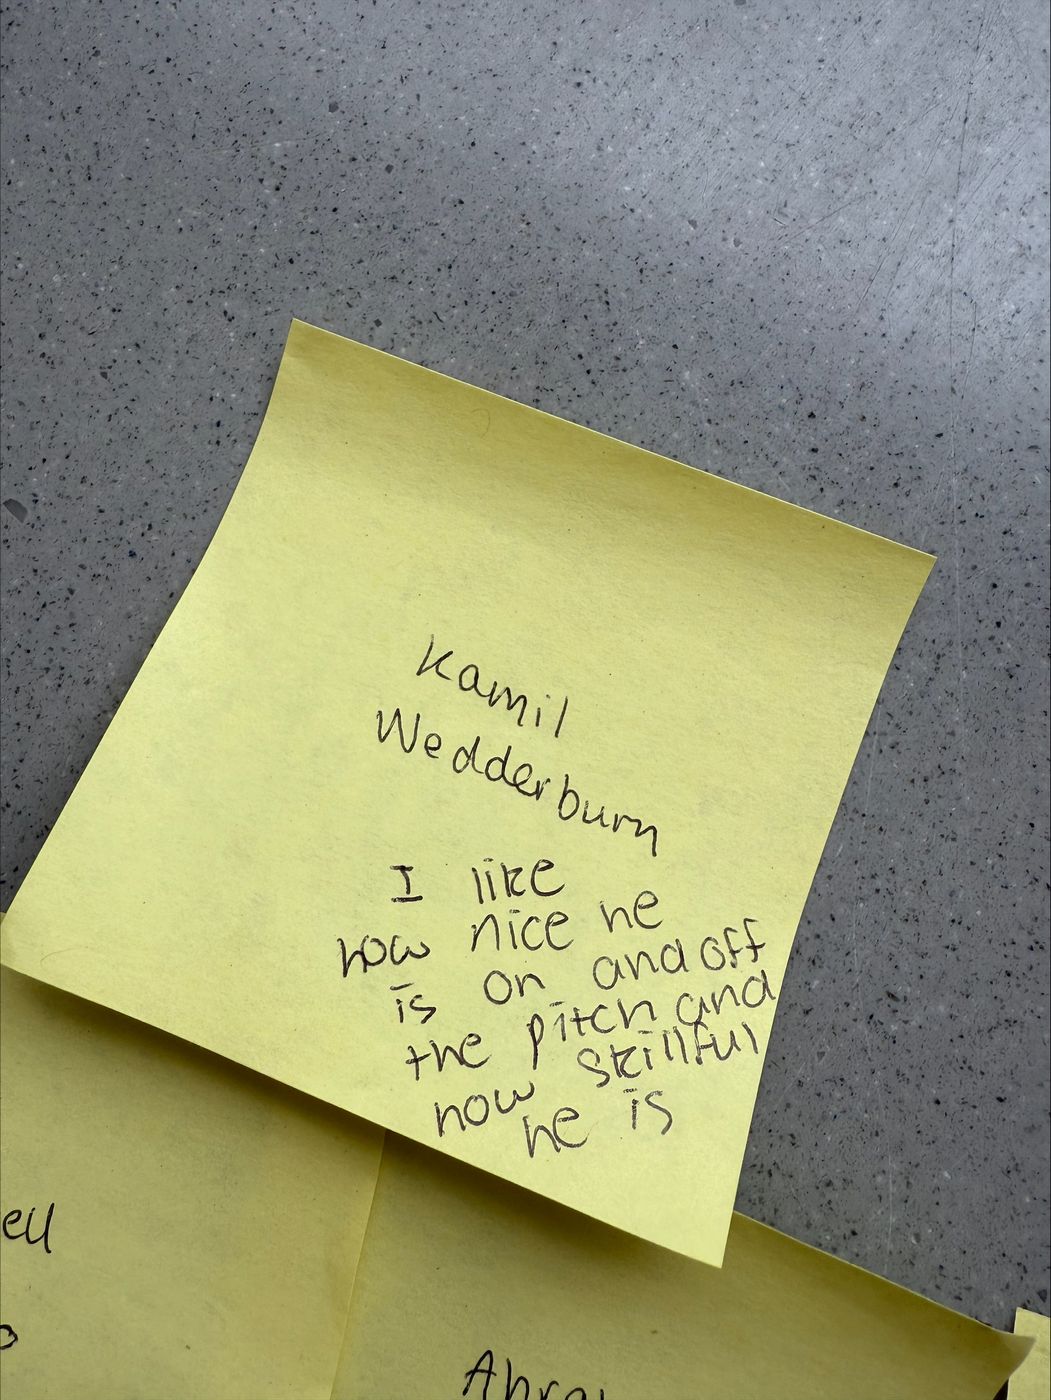 Kamil
Wedderburn
I like
how nice he
is on and off
the pitch and
how skillful
he is
ell